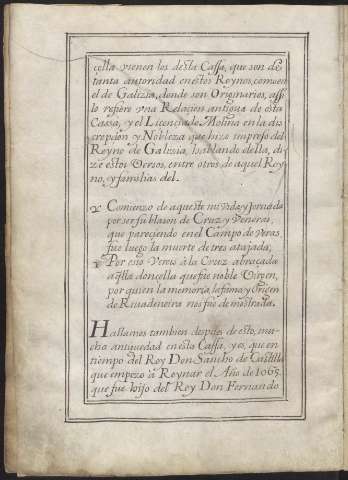 cella vienen los desta Cassa, que son de
tanta autoridad en estos Reynos, como en
el de Galizia, donde son Originarios, assi
lo refiere vna Relacion antigua de esta
Cassa, y el Licenciado Molina en la dis
cripcion y Nobleza que hizo impreso del
Reyno de Galisia, hablando della, di
ze estos Versos, entre otros de aquel Rey
no, y familias del.
Comienzo de aqueste mi vida y jornada
por ser su blason de Cruz y Veneras,
que pareciendo en el Campo de Veras
fue luego la muerte de tres atajada;
Por esso Vereis à la Cruz abraçada
aqlla doncella que fue noble Virgen,
por quien la memoria, la fama, y Origen
de Riuadeneira nos fue demostrada.
Hallamos tambien despues de esto, mu-
cha antiguedad en esta Cassa, y es, que en
tiempo del Rey Don Sancho de Castilla
que empezo à Reynar el Año de 1065
que fue hijo del Rey Don Fernando